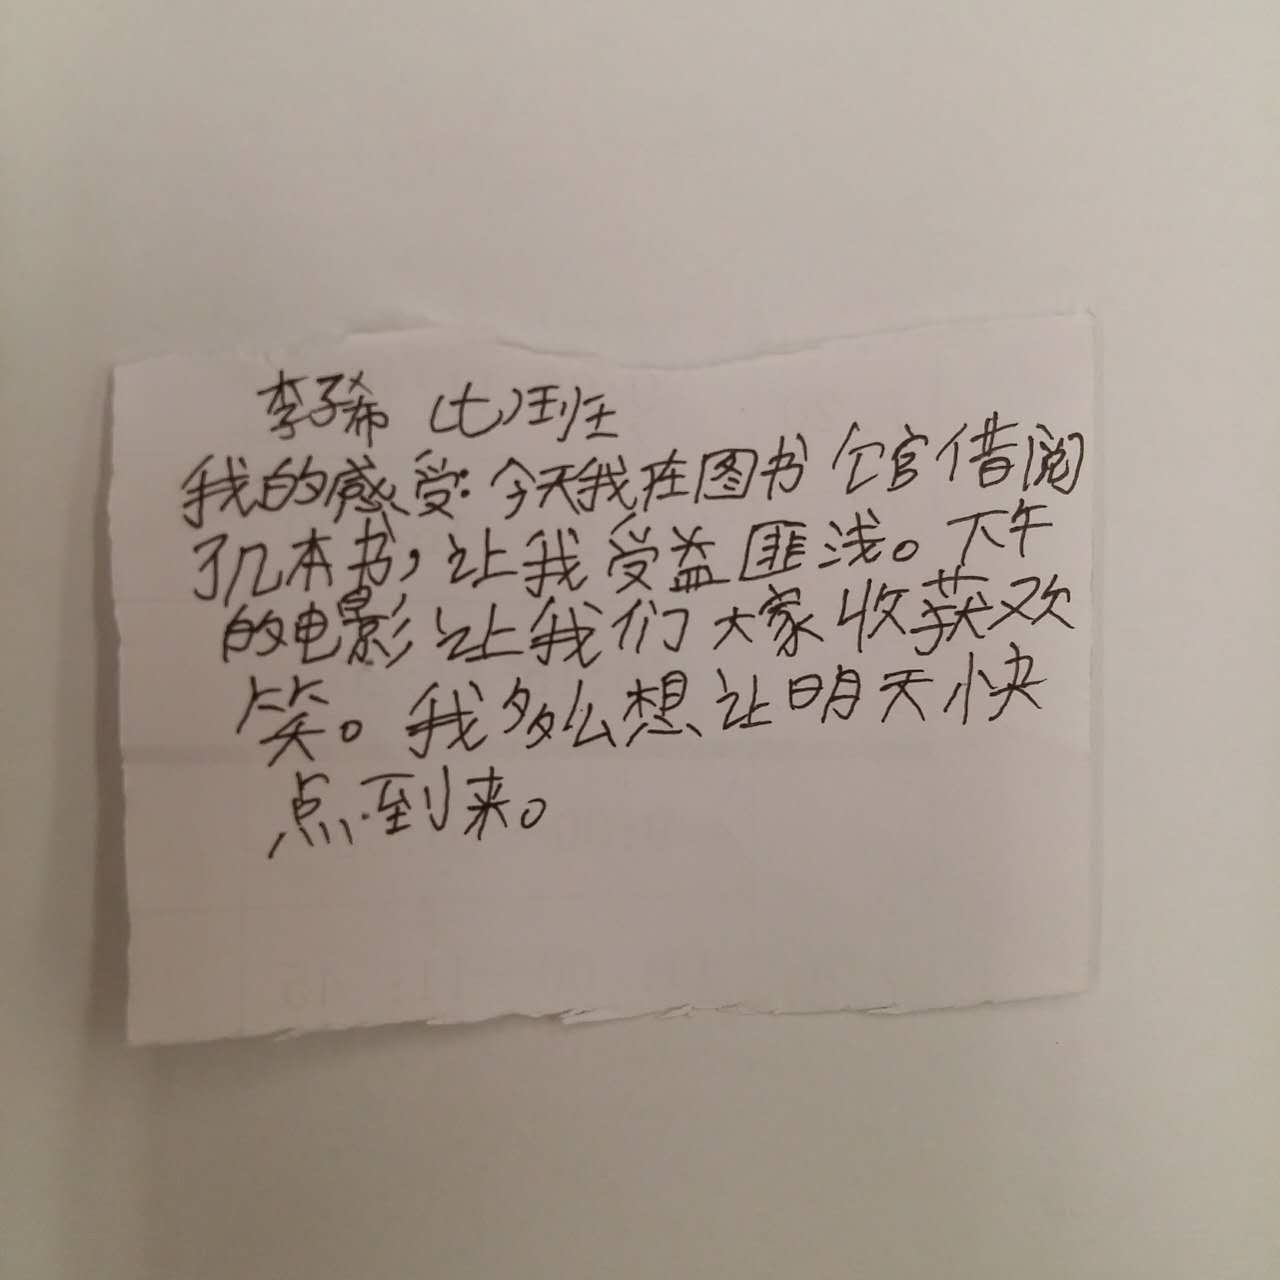 李子希（七）班
我的感受：今天我在图书馆借阅
了几本书，让我受益匪浅。下午
的电影让我们大家收获欢
笑。我多么想让明天快
点到来。